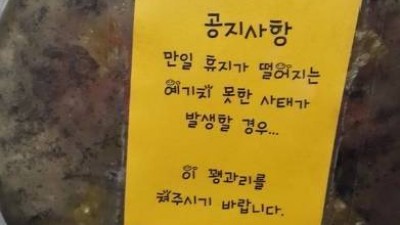 공지사항
만일 휴지가 떨어지는
예기치 못한 사태가
발생할 경우...
이 꽹과리를
쳐주시기 바랍니다.